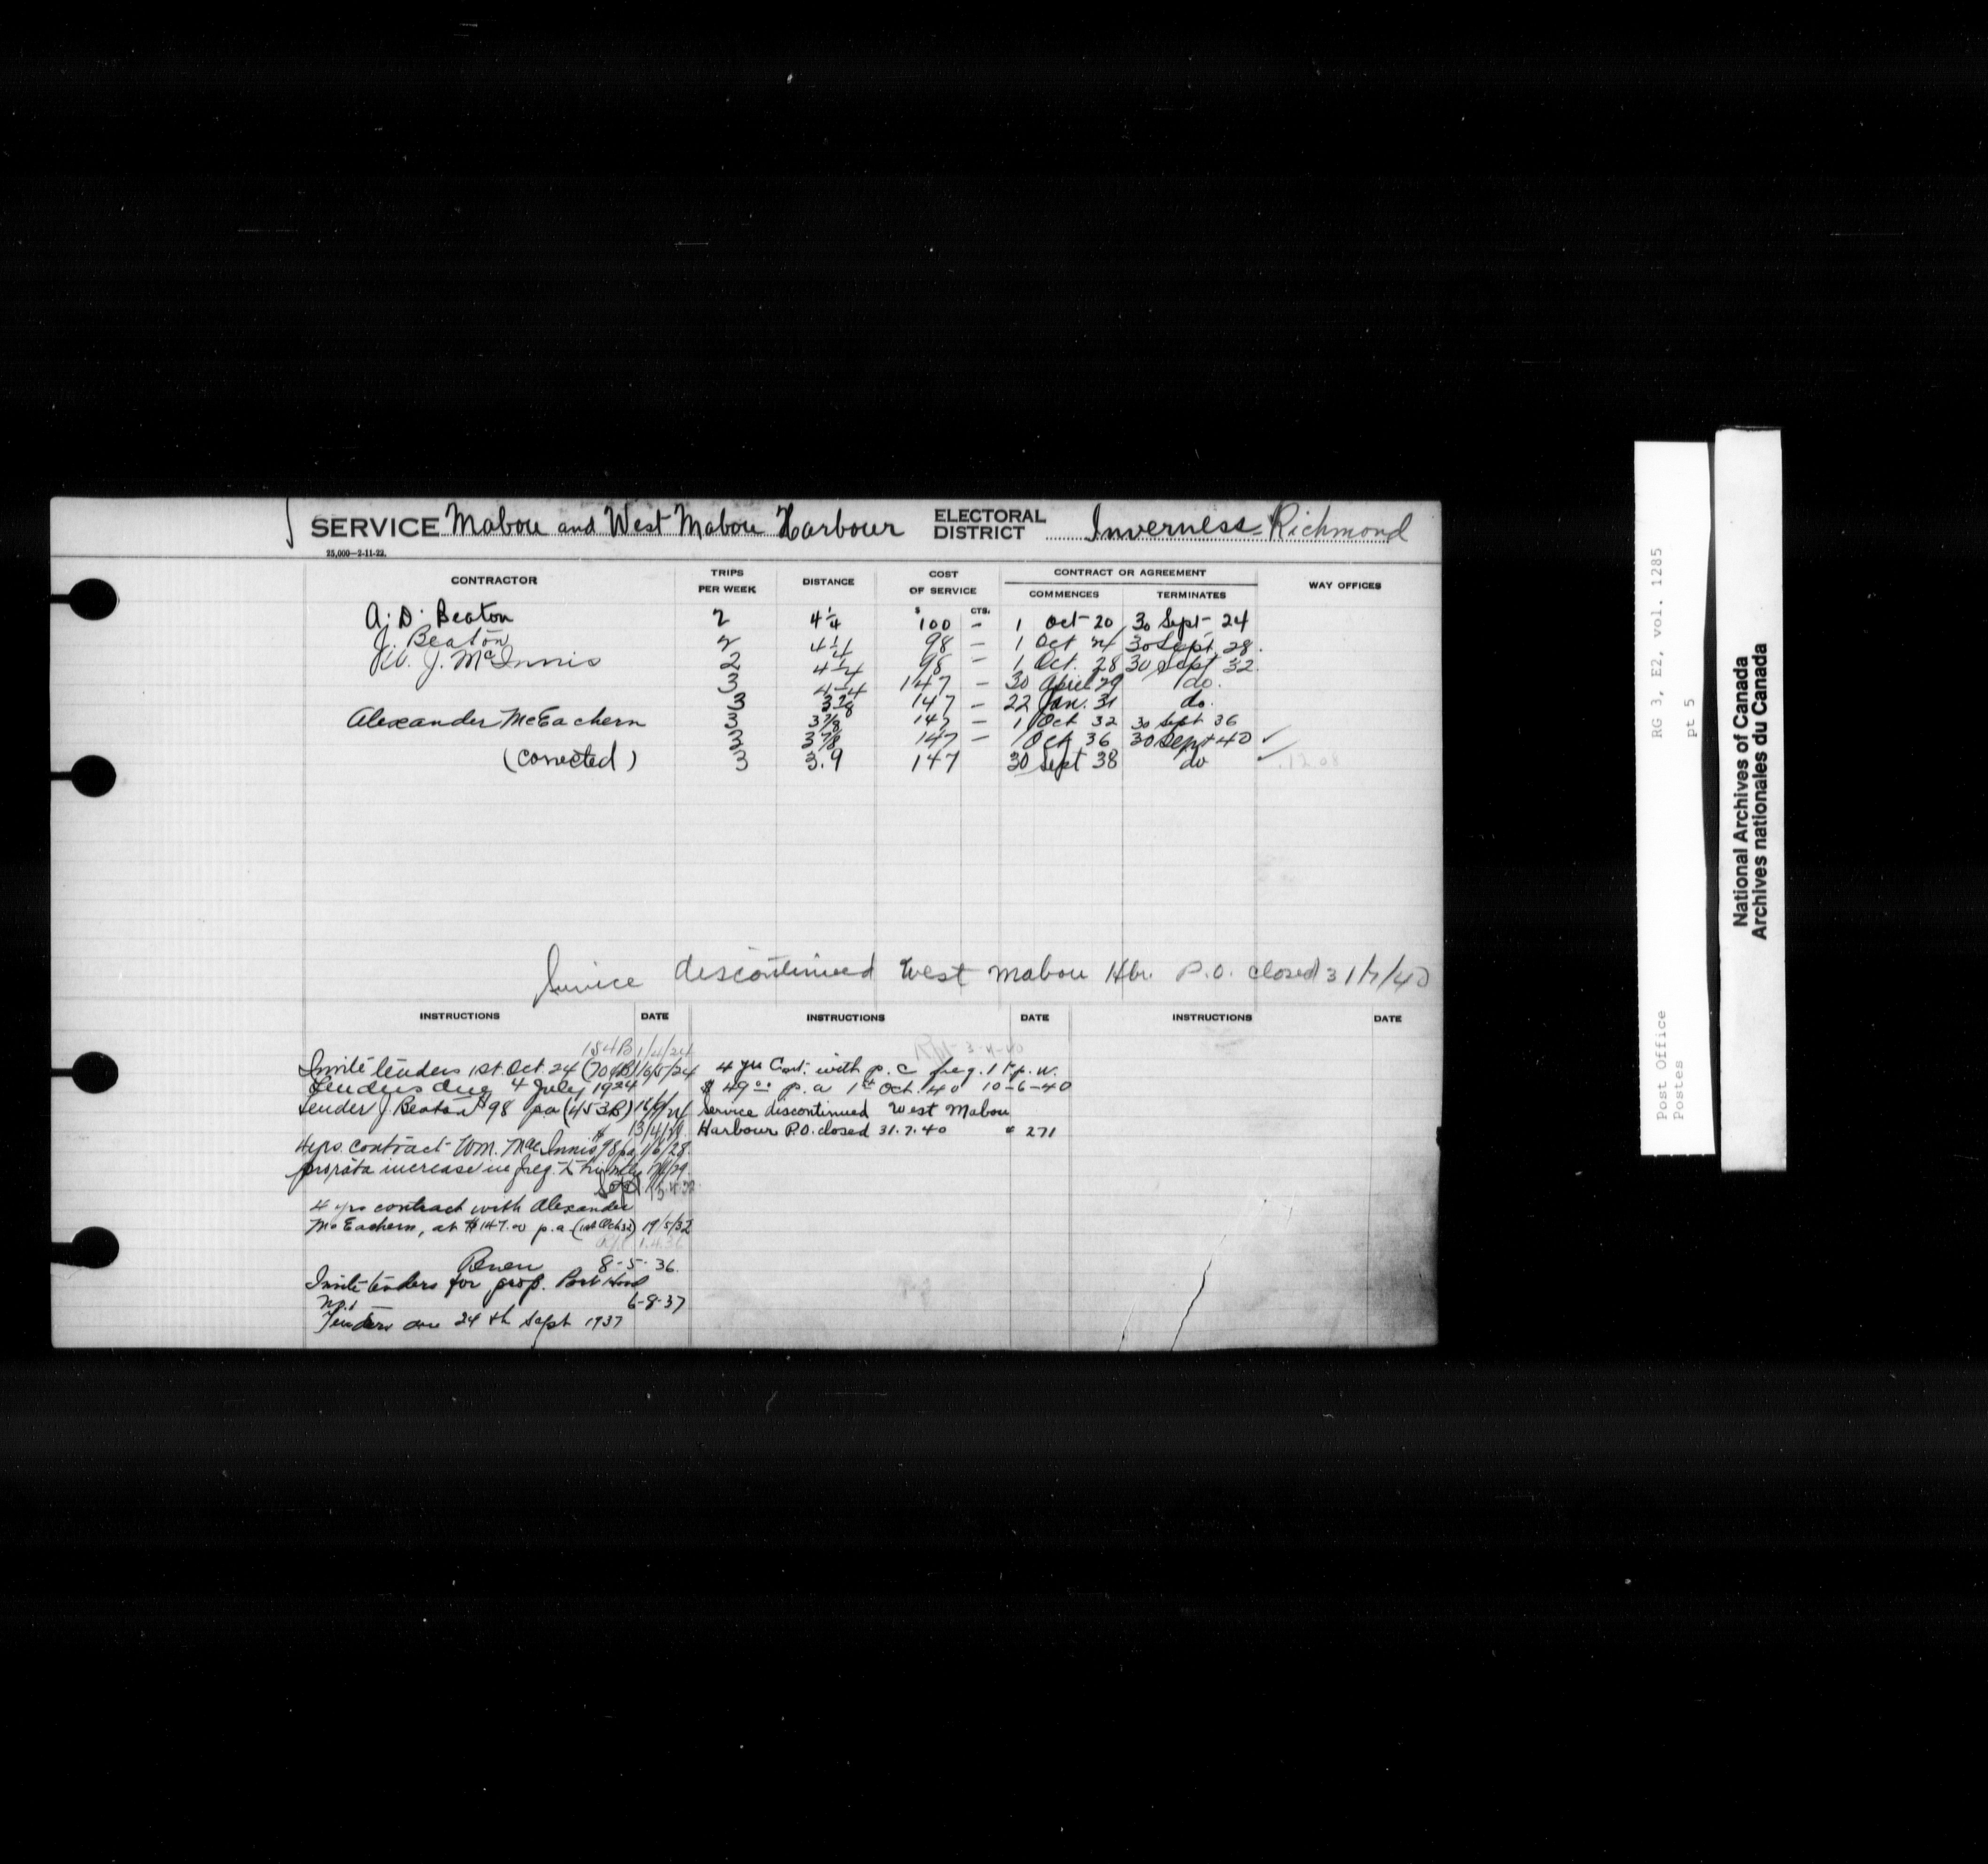 SERVICE Mabou and West Mabou Harbour ELECTORAL DISTRICT Inverness-Richmond
25,000—2-11-22.
CONTRACTOR TRIPS PER WEEK DISTANCE COST OF SERVICE CONTRACT OR AGREEMENT WAY OFFICES
$ CTS. COMMENCES TERMINATES
A. D. Beaton 2 4¼ 100 — 1 Oct-20 30 Sept-24
J. Beaton 2 4¼ 98 — 1 Oct 24 30 Sept. 28.
W. J. McInnis 2 4¼ 98 — 1 Oct. 28 30 Sept 32
3 4¼ 147 — 30 April 29 do.
3 3⅞ 147 — 22 Jan. 31 do.
Alexander McEachern 3 3⅞ 147 — 1 Oct 32 30 Sept 36
3 3⅞ 147 — 1 Oct 36 30 Sept 40 ✓
(corrected) 3 3.9 147 30 Sept 38 do ✓ .1208
Service discontinued West Mabou Hbr. P.O. closed 31/7/40
INSTRUCTIONS DATE INSTRUCTIONS DATE INSTRUCTIONS DATE
184B 1/4/24
Invite tenders 1st. Oct. 24 (709B) 16/5/24
Tenders due 4 July 1924
Tender J. Beaton $98 pa (453B)
4 yrs. contract - Wm. MacInnis 98 pa 1/6/28.
prorata increase in freq.
4 yrs contract with Alexander
McEachern, at $147.00 p.a. (1st Oct 32) 19/5/32
1.4.36
Renew 8-5-36.
Invite tenders for prop. Port Hood
No. 1 6-8-37
Tenders due 24th Sept 1937
3-4-40
4 yr Cont. with p. c freq. 1 t p. w.
$49.00 p. a 1st Oct. 40 10-6-40
Service discontinued West Mabou
Harbour P.O. closed 31.7.40 # 271
RG 3, E2, vol. 1285
pt 5
Post Office
Postes
National Archives of Canada
Archives nationales du Canada